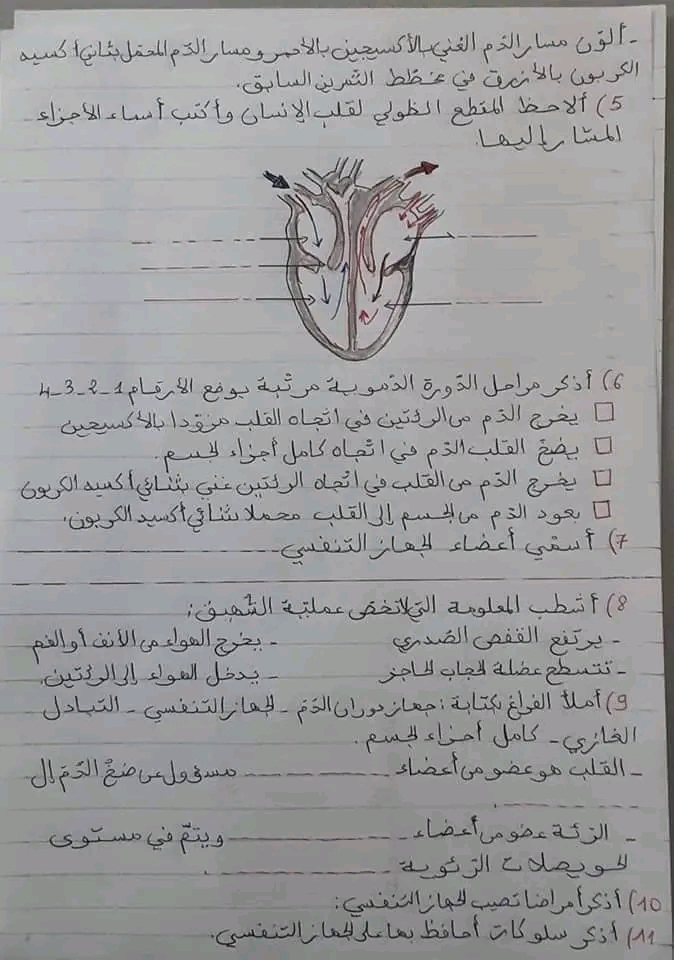 - ألوّن مسار الدّم الغني بالأكسيجين بالأحمر ومسار الدّم المحمّل بثاني أكسيد
الكربون بالأزرق في مخطّط التّمرين السابق.
5) ألاحظ المقطع الطولي لقلب الإنسان وأكتب أسماء الأجزاء
المشار إليها.
6) أذكر مراحل الدّورة الدّموية مرتّبة بوضع الأرقام 1-2-3-4
يخرج الدّم من الرئتين في اتجاه القلب مزوّدا بالأكسيجين
يضخّ القلب الدّم في اتّجاه كامل أجزاء الجسم.
يخرج الدّم من القلب في اتّجاه الرئتين غني بثنائي أكسيد الكربون
يعود الدّم من الجسم إلى القلب محملا بثنائي أكسيد الكربون.
7) أسمّي أعضاء الجهاز التنفسي
8) أشطب المعلومة التي لا تخصّ عمليّة الشّهيق:
- يرتفع القفص الصّدري - يخرج الهواء من الأنف أو الفم
- تتسطح عضلة الحجاب الحاجز - يدخل الهواء إلى الرئتين.
9) أملأ الفراغ بكتابة: جهاز دوران الدّم - الجهاز التنفسي - التبادل
الغازي - كامل أجزاء الجسم.
- القلب هو عضو من أعضاء مسؤول عن ضخّ الدّم إلى
- الرّئة عضو من أعضاء ويتمّ في مستوى
الحويصلات الرّئوية
10) أذكر أمراضا تصيب الجهاز التنفسي:
11) أذكر سلوكات أحافظ بها على الجهاز التنفسي.